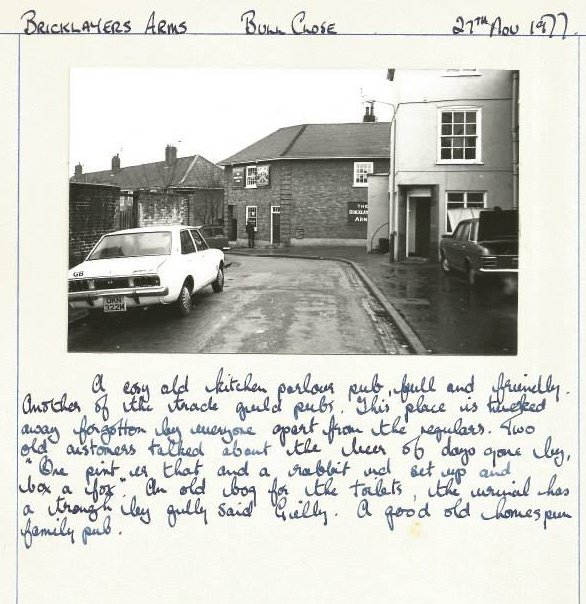 BRICKLAYERS ARMS BULL CLOSE 27TH NOV 1977.
THE
BRICKLAYERS
ARMS
GB
A cosy old kitchen parlour pub, full and friendly.
Another of the trade guild pubs. This place is tucked
away forgotton by everyone apart from the regulars. Two
old customers talked about the beer of days gone by,
"One pint er that and a rabbit ud set up and
box a fox". An old bog for the toilets, the urinal has
a trough by gully said Gielly. A good old homespun
family pub.